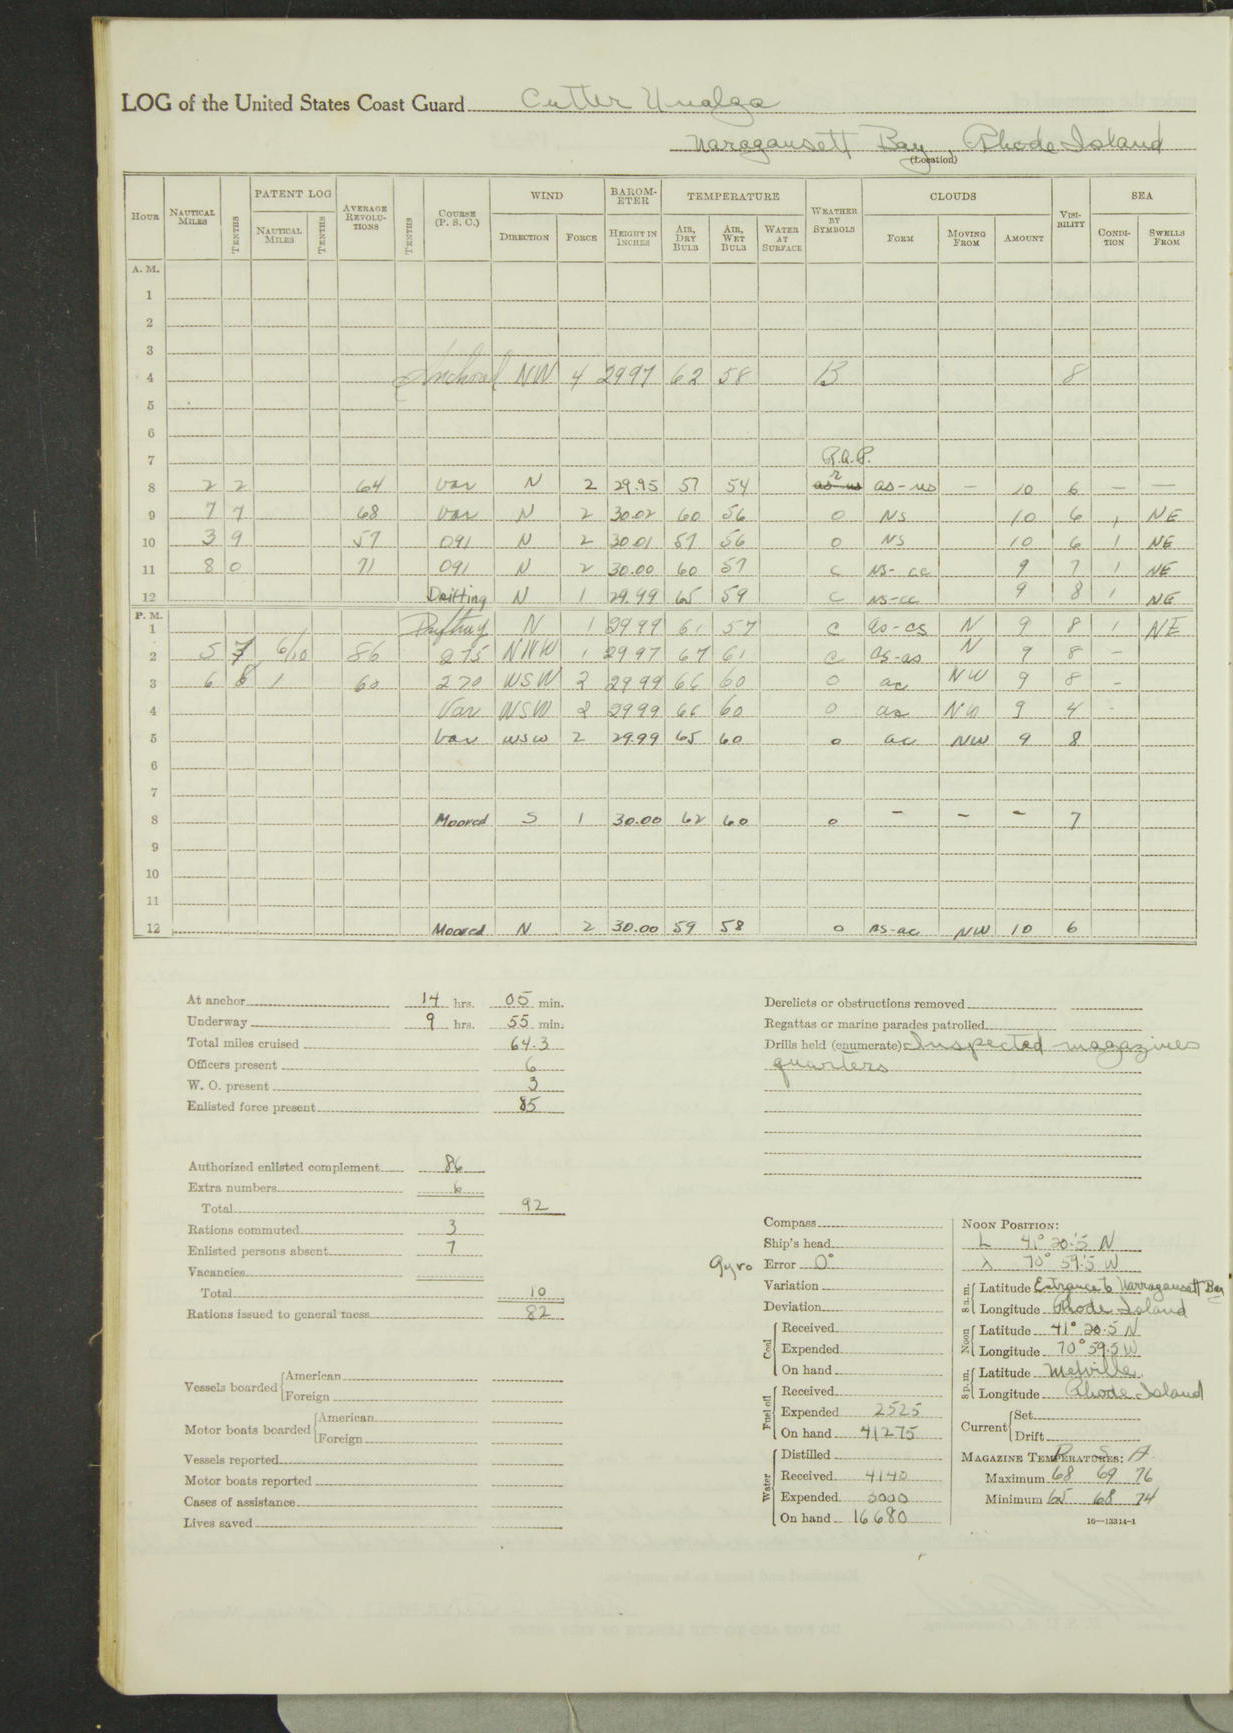 LOG of the United States Coast Guard Cutter Unalga
Naragansett Bay, Rhode Island
(Location)
HOUR NAUTICAL MILES TENTHS PATENT LOG NAUTICAL MILES TENTHS AVERAGE REVOLUTIONS TENTHS COURSE (P. S. C.) WIND DIRECTION FORCE BAROMETER HEIGHT IN INCHES TEMPERATURE AIR, DRY BULB AIR, WET BULB WATER AT SURFACE WEATHER BY SYMBOLS CLOUDS FORM MOVING FROM AMOUNT VISIBILITY SEA CONDITION SWELLS FROM
A. M.
1
2
3
4 Anchored NW 4 2997 62 58 B 8
5
6
7 R.A.P.
8 2 2 64 Var N 2 29.95 57 54 r as-ns as-ns — 10 6 — —
9 7 7 68 Var N 2 30.02 60 56 O NS 10 6 1 NE
10 3 9 57 091 N 2 30.01 57 56 O NS 10 6 1 NE
11 8 0 71 091 N 2 30.00 60 57 C NS-cc 9 7 1 NE
12 Drifting N 1 29.99 65 59 C NS-cc 9 8 1 NE
P. M.
1 Drifting N 1 2999 61 57 C as-cs N 9 8 1 NE
2 5 7 6/10 86 275 NNW 1 2997 67 61 C cs-as N 9 8 –
3 6 8 1 60 270 WSW 2 2999 66 60 O ac NW 9 8 –
4 Var WSW 2 2999 66 60 O ac NW 9 4
5 Var WSW 2 29.99 65 60 O ac NW 9 8
6
7
8 Moored S 1 30.00 62 60 O – – – 7
9
10
11
12 Moored N 2 30.00 59 58 O as-ac NW 10 6
At anchor 14 hrs. 05 min.
Underway 9 hrs. 55 min.
Total miles cruised 64.3
Officers present 6
W. O. present 3
Enlisted force present 85
Authorized enlisted complement 86
Extra numbers 6
Total 92
Rations commuted 3
Enlisted persons absent 7
Vacancies
Total 10
Rations issued to general mess 82
Vessels boarded American
Foreign
Motor boats boarded American
Foreign
Vessels reported
Motor boats reported
Cases of assistance
Lives saved
Derelicts or obstructions removed
Regattas or marine parades patrolled
Drills held (enumerate) Inspected magazines
quarters
Compass
Ship's head
Gyro Error 0°
Variation
Deviation
Coal Received
Expended
On hand
Fuel oil Received
Expended 2525
On hand 41275
Water Distilled
Received 4140
Expended 3000
On hand 16680
NOON POSITION:
L 41° 20.'5 N
λ 70° 59.'5 W
8 a.m. Latitude Entrance to Narragansett Bay
Longitude Rhode Island
Noon Latitude 41° 20.5 N
Longitude 70° 59.5 W
8 p.m. Latitude Melville
Longitude Rhode Island
Current Set
Drift
MAGAZINE TEMPERATURES: P S A
Maximum 68 69 76
Minimum 65 68 74
16—13314-1